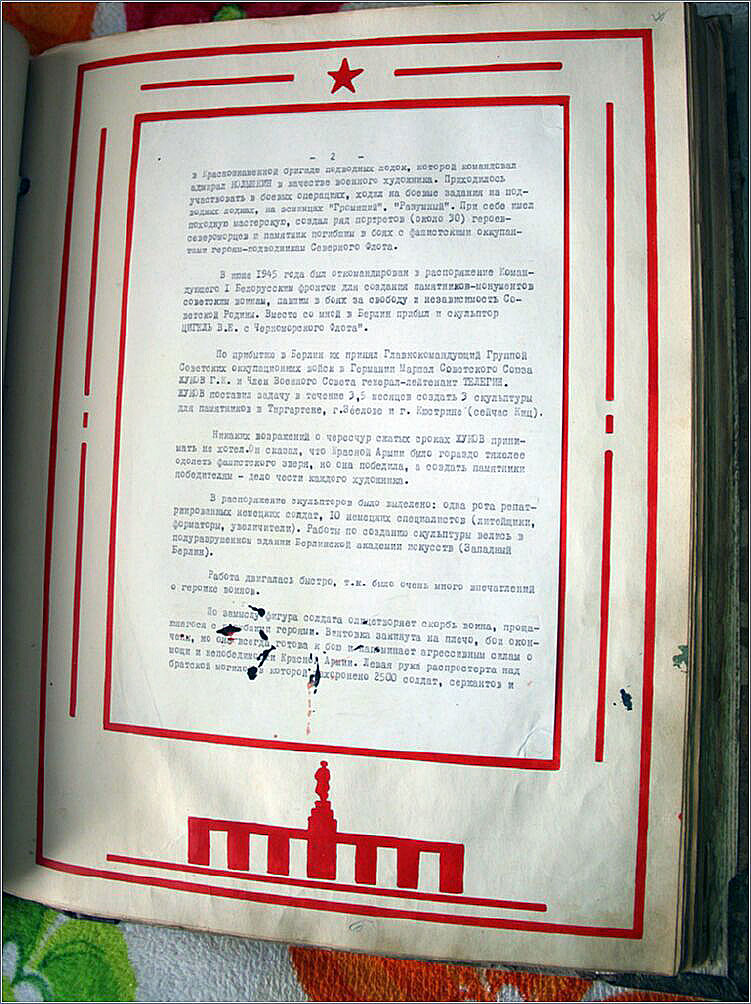 - 2 -
в Краснознаменной бригаде подводных лодок, которой командовал
адмирал КОЛЫШКИН в качестве военного художника. Приходилось
участвовать в боевых операциях, ходил на боевые задания на под-
водных лодках, на эсминцах "Громящий". "Разумный". При себе имел
походную мастерскую, создал ряд портретов (около 30) героев-
североморцев и памятник погибшим в боях с фашистскими оккупан-
тами героям-подводникам Северного Флота.
В июне 1945 года был откомандирован в распоряжение Коман-
дующего I Белорусским фронтом для создания памятников-монументов
советским воинам, павшим в боях за свободу и независимость Со-
ветской Родины. Вместе со мной в Берлин прибыл и скульптор
ЦИГЕЛЬ В.Е. с Черноморского Флота".
По прибытию в Берлин их принял Главнокомандующий Группой
Советских оккупационных войск в Германии Маршал Советского Союза
ЖУКОВ Г.К. и Член Военного Совета генерал-лейтенант ТЕЛЕГИН.
ЖУКОВ поставил задачу в течение 3,5 месяцев создать 3 скульптуры
для памятников в Тиргартене, г.Зеелове и г. Кюстрине (сейчас Киц).
Никаких возражений о чересчур сжатых сроках ЖУКОВ прини-
мать не хотел.Он сказал, что Красной Армии было гораздо тяжелее
одолеть фашистского зверя, но она победила, а создать памятники
победителям - дело чести каждого художника.
В распоряжение скульпторов было выделено: одна рота репат-
риированных немецких солдат, 10 немецких специалистов (литейщики,
форматоры, увеличители). Работы по созданию скульптуры велись в
полуразрушенном здании Берлинской академии искусств (Западный
Берлин).
Работа двигалась быстро, т.к. было очень много впечатлений
о героике воинов.
По замыслу фигура солдата олицетворяет скорбь воина, проща-
ющегося с героями. Винтовка закинута на плечо, бои окон-
чены, но она всегда готова к бою и напоминает агрессивным силам о
мощи и непобедимости Красной Армии. Левая рука распростерта над
братской могилой, в которой захоронено 2500 солдат, сержантов и